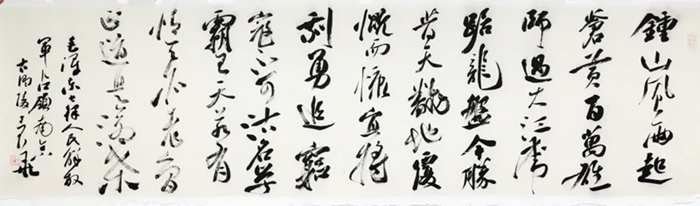 鍾山風雨起
蒼黄百萬雄
師過大江虎
踞龍盤今勝
昔天翻地覆
慨而慷宜將
剩勇追窮
寇不可沽名學
霸王天若有
情天亦老人間
正道是滄桑
毛澤東七律人民解放
軍占領南京